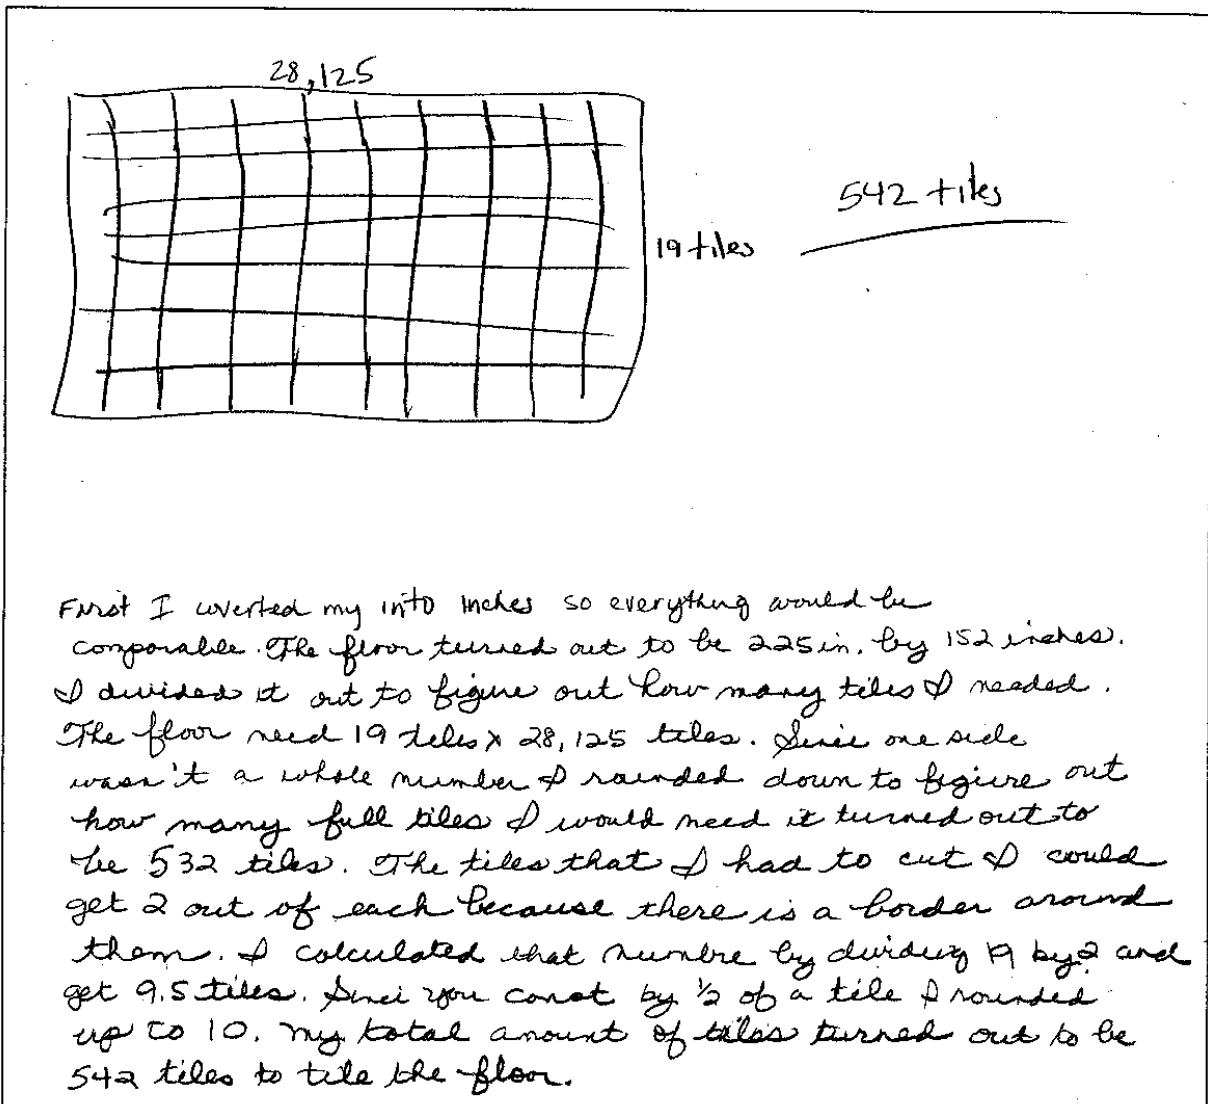 28,125
542 tiles
19 tiles
First I cverted my into inches so everything would be
comparable. The floor turned out to be 225 in. by 152 inches.
I divided it out to figure out how many tiles I needed.
The floor need 19 tiles x 28,125 tiles. Since one side
wasn't a whole number I rounded down to figure out
how many full tiles I would need it turned out to
be 532 tiles. The tiles that I had to cut I could
get 2 out of each because there is a border around
them. I calculated that numbre by dividing 19 by 2 and
get 9.5 tiles. Since you by 1/2 of a tile I rounded
up to 10. My total amount of tiles turned out to be
542 tiles to tile the floor.